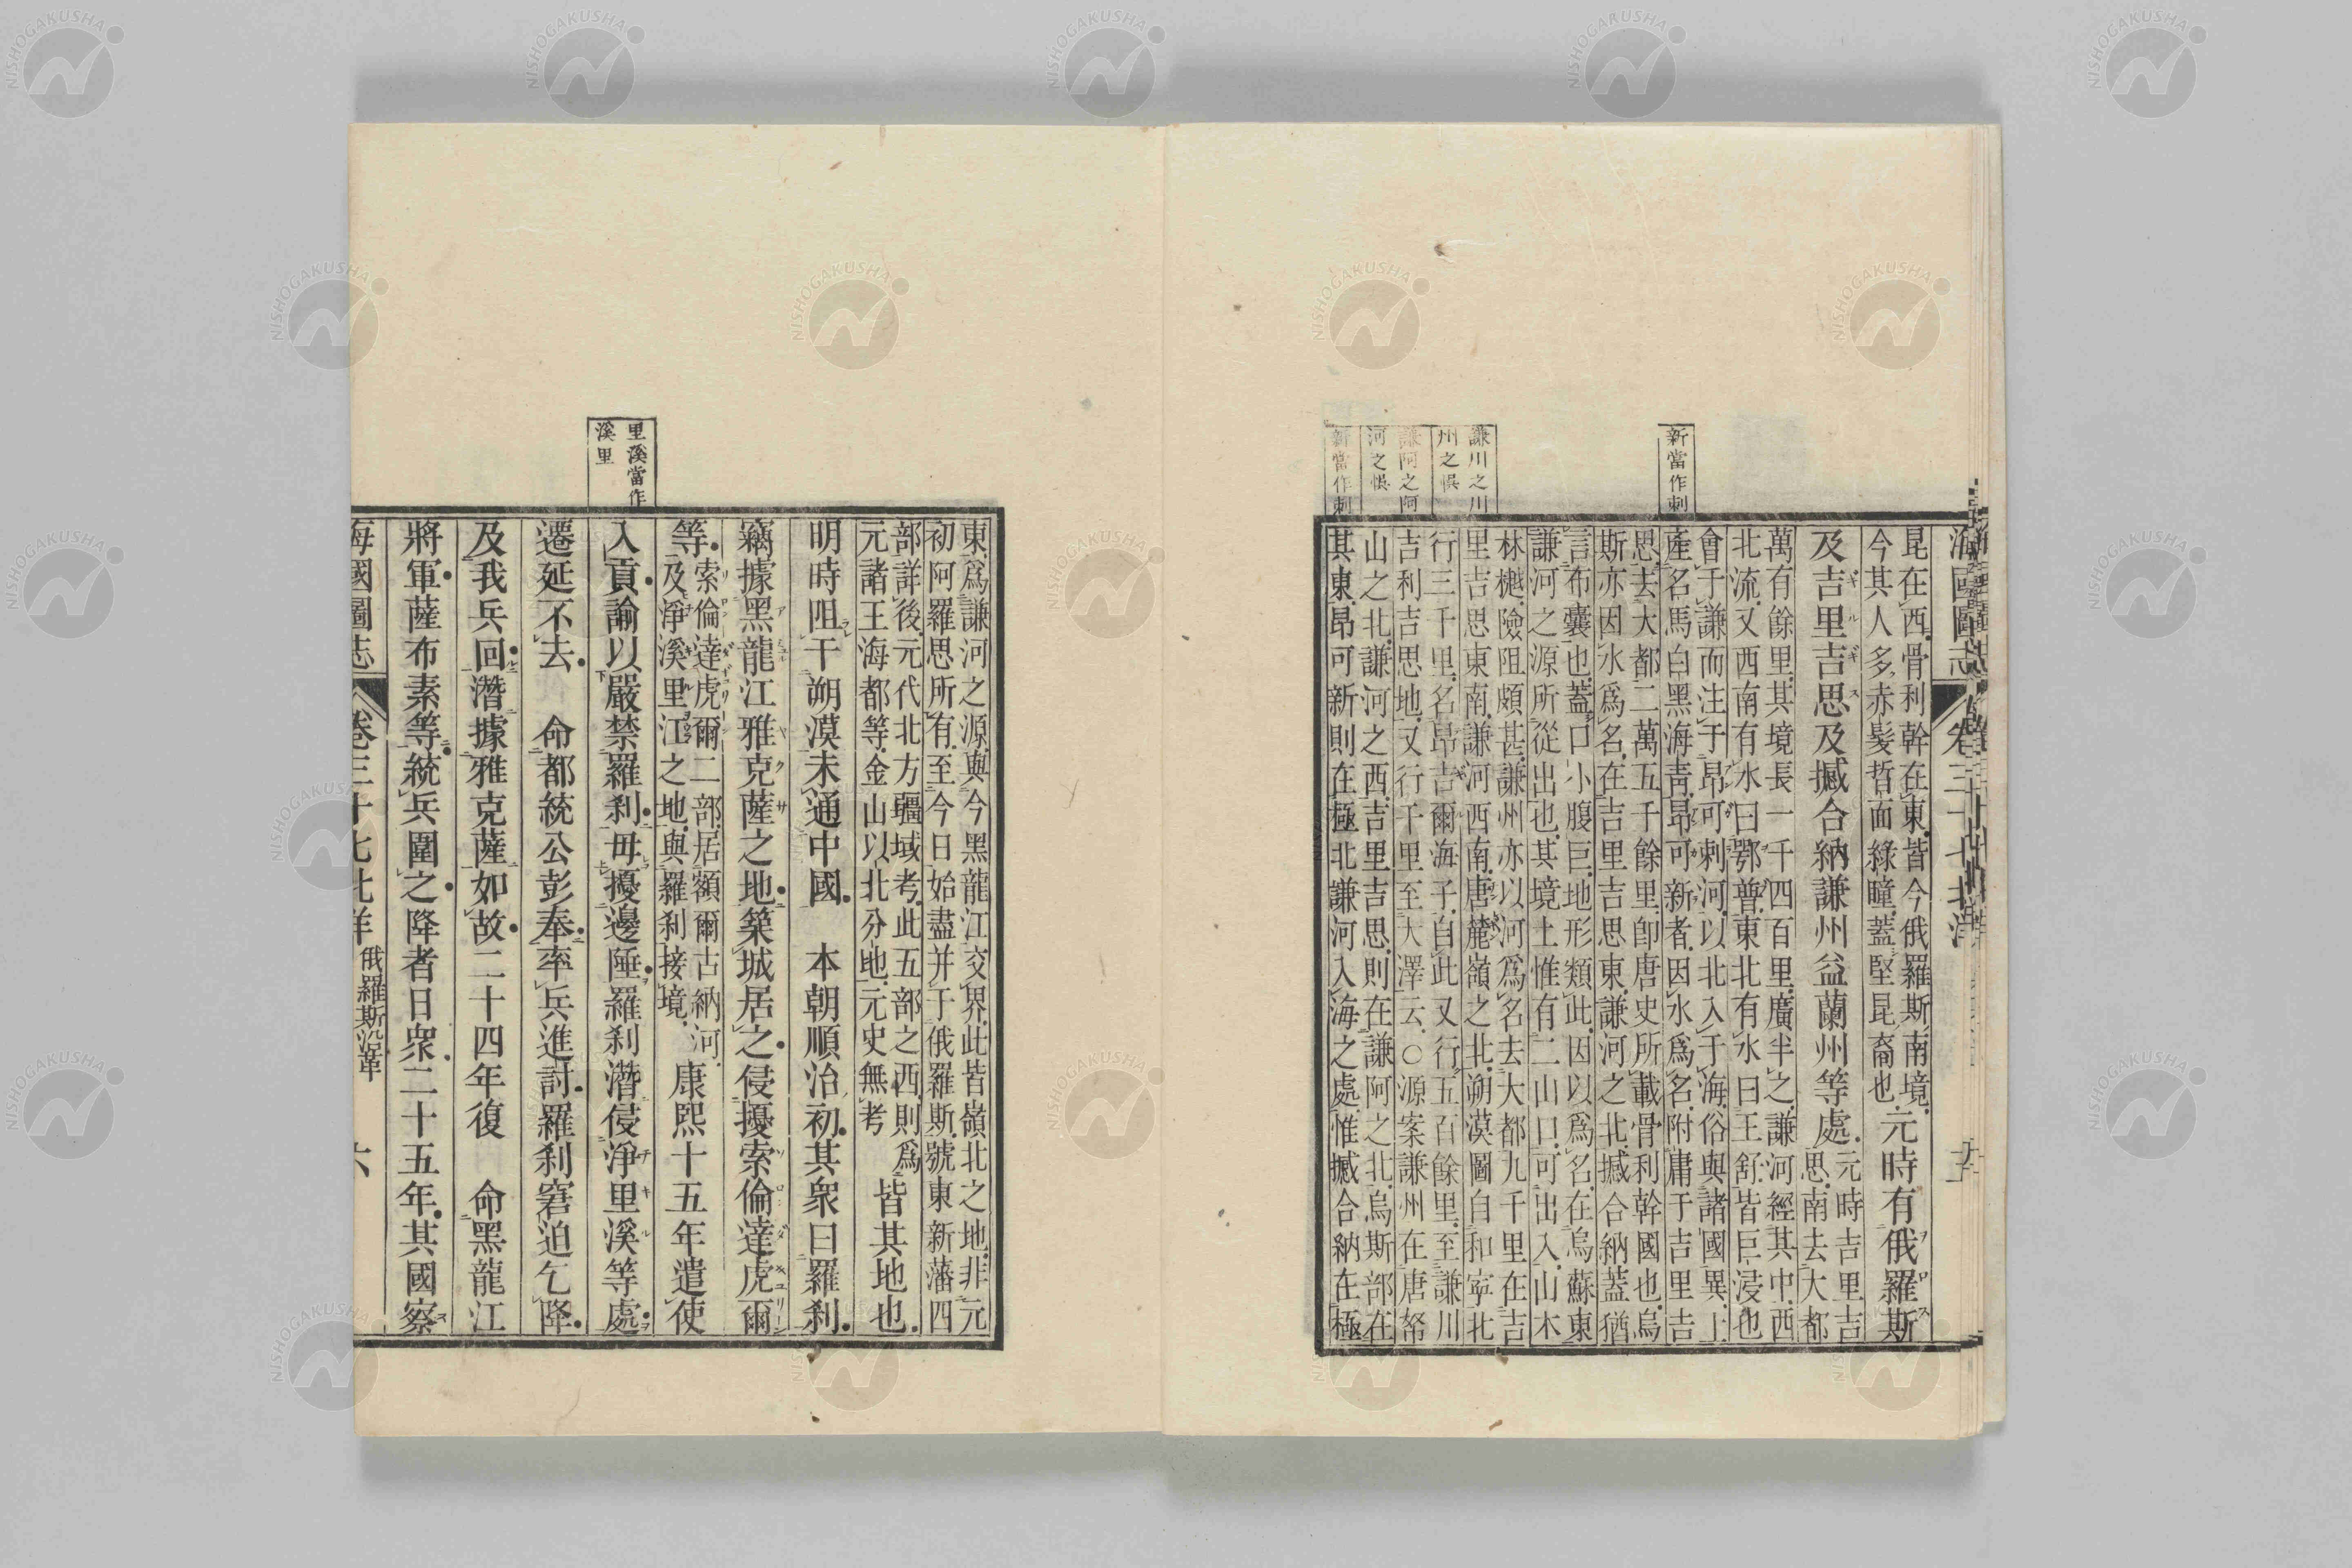 海國圖志 卷三十七 北洋
新當作剌
謙川之川
州之悞
謙阿之阿
河之悞
新當作剌
昆在西骨利幹在東皆今俄羅斯南境
今其人多赤髮晳面綠瞳蓋堅昆裔也
元時有俄羅斯
及吉里吉思及撼合納謙州益蘭州等處
元時吉里吉
思南去大都
萬有餘里其境長一千四百里廣半之謙河經其中西
北流又西南有水曰鄂普東北有水曰王舒皆巨浸也
會于謙而注于昂可剌河以北入于海俗與諸國異上
產名馬白黑海靑昂可新者因水爲名附庸于吉里吉
思去大都二萬五千餘里卽唐史所載骨利幹國也烏
斯亦因水爲名在吉里吉思東謙河之北撼合納蓋猶
言布囊也蓋口小腹巨地形類此因以爲名在烏蘇東
謙河之源所從出也其境土惟有二山口可出入山木
林樾險阻頗甚謙州亦以河爲名去大都九千里在吉
里吉思東南謙河西南唐麓嶺之北朔漠圖自和寧北
行三千里名昂吉爾海子自此又行五百餘里至謙川
吉利吉思地又行千里至大澤云○源案謙州在唐拏
山之北謙河之西吉里吉思則在謙阿之北烏斯部在
其東昂可新則在極北謙河入海之處惟撼合納在極
里溪當作
溪里
東爲謙河之源與今黑龍江交界此皆嶺北之地非元
初阿羅思所有至今日始盡并于俄羅斯號東新藩四
部詳後元代北方疆域考此五部之西則爲
元諸王海都等金山以北分地元史無考
皆其地也
明時阻干朔漠未通中國 本朝順治初其衆曰羅刹
竊據黑龍江雅克薩之地築城居之侵擾索倫達虎爾
等
索倫達虎爾二部居額爾古納河
及淨溪里江之地與羅刹接境
康熙十五年遣使
入貢諭以嚴禁羅刹毋擾邊陲羅刹潛侵淨里溪等處
遷延不去 命都統公彭奉率兵進討羅刹窘迫乞降
及我兵回潛據雅克薩如故二十四年復 命黑龍江
將軍薩布素等統兵圍之降者日衆二十五年其國察
海國圖志 卷三十七 北洋 俄羅斯沿革 六